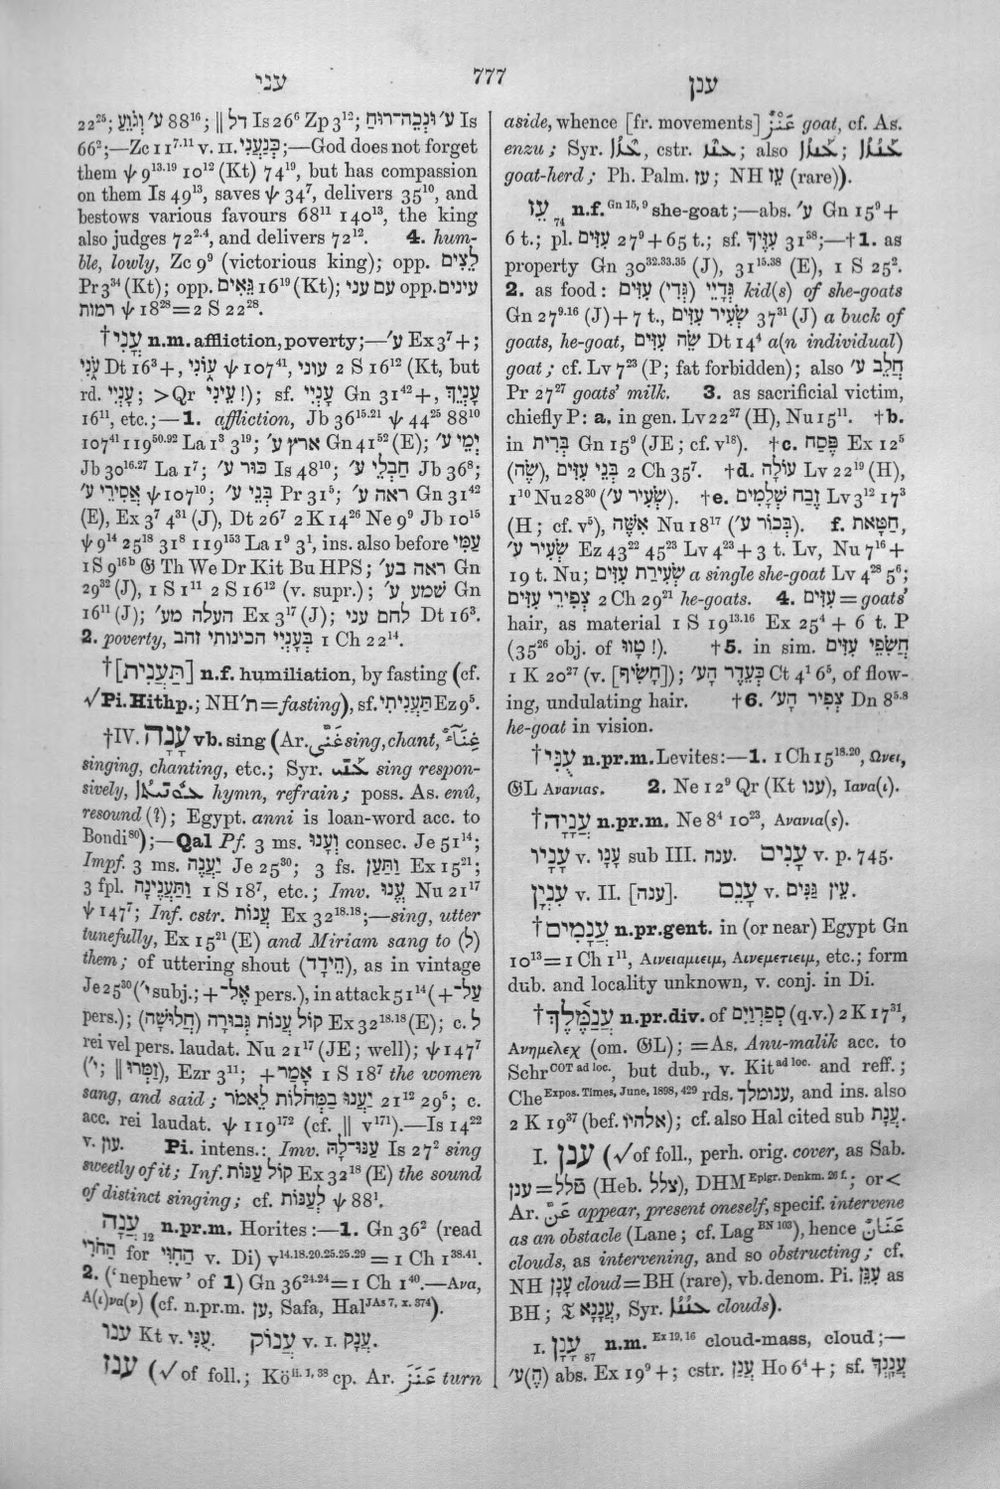 עני
777
ענן
22²⁶; עָנִי וְגֹוֵעַ 88¹⁶; ‖ דל Is 26⁶ Zp 3¹²; ע׳ וּנְכֵה־רוּחַ Is
66²;—Zc 11⁷·¹¹ v. II. כְּנַעֲנִי;—God does not forget
them ψ 9¹³·¹⁹ 10¹² (Kt) 74¹⁹, but has compassion
on them Is 49¹³, saves ψ 34⁷, delivers 35¹⁰, and
bestows various favours 68¹¹ 140¹³, the king
also judges 72²·⁴, and delivers 72¹². 4. hum-
ble, lowly, Zc 9⁹ (victorious king); opp. לֵצִים
Pr 3³⁴ (Kt); opp. גֵּאִים 16¹⁹ (Kt); עם עני opp. עינים
רמות ψ 18²⁸ = 2 S 22²⁸.
†עֳנִי n.m. affliction, poverty;—ע׳ Ex 3⁷ +;
עֹ֫נִי Dt 16³ +, עוֹנִי ψ 107⁴¹, עוני 2 S 16¹² (Kt, but
rd. עָנְיִי; > Qr עֵינִי !); sf. עָנְיִי Gn 31⁴² +, עָנְיֵךְ
16¹¹, etc.;—1. affliction, Jb 36¹⁵·²¹ ψ 44²⁵ 88¹⁰
107⁴¹ 119⁵⁰·⁹² La 1³ 3¹⁹; ארץ ע׳ Gn 41⁵² (E); יְמֵי ע׳
Jb 30¹⁶·²⁷ La 1⁷; כּוּר ע׳ Is 48¹⁰; חַבְלֵי ע׳ Jb 36⁸;
אֲסִירֵי ע׳ ψ 107¹⁰; בְּנֵי ע׳ Pr 31⁵; ראה ע׳ Gn 31⁴²
(E), Ex 3⁷ 4³¹ (J), Dt 26⁷ 2 K 14²⁶ Ne 9⁹ Jb 10¹⁵
ψ 9¹⁴ 25¹⁸ 31⁸ 119¹⁵³ La 1⁹ 3¹, ins. also before עַמִּי
1 S 9¹⁶ᵇ 𝔊 Th We Dr Kit Bu HPS; ראה בע׳ Gn
29³² (J), 1 S 1¹¹ 2 S 16¹² (v. supr.); שמע ע׳ Gn
16¹¹ (J); העלה מע׳ Ex 3¹⁷ (J); לחם עני Dt 16³.
2. poverty, בְּעָנְיִי הכינותי זהב 1 Ch 22¹⁴.
†[תַּעֲנִית] n.f. humiliation, by fasting (cf.
√Pi. Hithp.; NH ת׳ = fasting), sf. תַּעֲנִיתִי Ez 9⁵.
†IV. עָנָה vb. sing (Ar. غَنَّى sing, chant, غِنَآءٌ
singing, chanting, etc.; Syr. ܥܢܝ sing respon-
sively, ܥܘܢܝܬܐ hymn, refrain; poss. As. enû,
resound (?); Egypt. anni is loan-word acc. to
Bondi⁸⁰);—Qal Pf. 3 ms. וְעָנוּ consec. Je 51¹⁴;
Impf. 3 ms. יַעֲנֶה Je 25³⁰; 3 fs. וַתַּעַן Ex 15²¹;
3 fpl. וַתַּעֲנֶינָה 1 S 18⁷, etc.; Imv. עֱנוּ Nu 21¹⁷
ψ 147⁷; Inf. cstr. עֲנוֹת Ex 32¹⁸·¹⁸;—sing, utter
tunefully, Ex 15²¹ (E) and Miriam sang to (לְ)
them; of uttering shout (הֵידָד), as in vintage
Je 25³⁰ (י׳ subj.; + אֶל־ pers.), in attack 51¹⁴ (+ עַל־
pers.); קוֹל עֲנוֹת גְּבוּרָה (חֲלוּשָׁה) Ex 32¹⁸·¹⁸ (E); c. לְ
rei vel pers. laudat. Nu 21¹⁷ (JE; well); ψ 147⁷
(י׳; ‖ זַמְּרוּ), Ezr 3¹¹; + אָמַר 1 S 18⁷ the women
sang, and said; יַעֲנוּ בַמְּחֹלוֹת לֵאמֹר 21¹² 29⁵; c.
acc. rei laudat. ψ 119¹⁷² (cf. ‖ v¹⁷¹).—Is 14²²
v. עון. Pi. intens.: Imv. עַנּוּ־לָהּ Is 27² sing
sweetly of it; Inf. קוֹל עַנּוֹת Ex 32¹⁸ (E) the sound
of distinct singing; cf. לְעַנּוֹת ψ 88¹.
עֲנָה ₁₂ n.pr.m. Horites:—1. Gn 36² (read
הַחֹרִי for הַחִוִּי v. Di) v¹⁴·¹⁸·²⁰·²⁵·²⁵·²⁹ = 1 Ch 1³⁸·⁴¹.
2. (‘nephew’ of 1) Gn 36²⁴·²⁴ = 1 Ch 1⁴⁰.—Ανα,
Α(ι)να(ν) (cf. n.pr.m. ען, Safa, Hal ᴶᴬˢ ⁷, ˣ· ³⁷⁴).
ענו Kt v. עֻנִּי. עֲנוֹק v. I. עֲנָק.
ענז (√ of foll.; Kö ⁱⁱ· ¹, ³⁸ cp. Ar. عَنَزَ turn
aside, whence [fr. movements] عَنْزٌ goat, cf. As.
enzu; Syr. ܥܙܐ, cstr. ܥܢܙ; also
goat-herd; Ph. Palm. עז; NH עֵז (rare)).
עֵז ₇₄ n.f. ᴳⁿ ¹⁵, ⁹ she-goat;—abs. ע׳ Gn 15⁹ +
6 t.; pl. עִזִּים 27⁹ + 65 t.; sf. עִזֶּיךָ 31³⁸;—†1. as
property Gn 30³²·³³·³⁵ (J), 31¹⁵·³⁸ (E), 1 S 25².
2. as food: גְּדָיֵי (גְּדִי) עִזִּים kid(s) of she-goats
Gn 27⁹·¹⁶ (J) + 7 t., שְׂעִיר עִזִּים 37³¹ (J) a buck of
goats, he-goat, שֵׂה עִזִּים Dt 14⁴ a(n individual)
goat; cf. Lv 7²³ (P; fat forbidden); also חֲלֵב ע׳
Pr 27²⁷ goats’ milk. 3. as sacrificial victim,
chiefly P: a. in gen. Lv 22²⁷ (H), Nu 15¹¹. †b.
in בְּרִית Gn 15⁹ (JE; cf. v¹⁸). †c. פֶּסַח Ex 12⁵
(שֶׂה), בְּנֵי עִזִּים 2 Ch 35⁷. †d. עוֹלָה Lv 22¹⁹ (H),
1¹⁰ Nu 28³⁰ (שְׂעִיר ע׳). †e. זֶבַח שְׁלָמִים Lv 3¹² 17³
(H; cf. v⁵), אִשֶּׁה Nu 18¹⁷ (בְּכוֹר ע׳). f. חַטָּאת,
שְׂעִיר ע׳ Ez 43²² 45²³ Lv 4²³ + 3 t. Lv, Nu 7¹⁶ +
19 t. Nu; שְׂעִירַת עִזִּים a single she-goat Lv 4²⁸ 5⁶;
צְפִירֵי עִזִּים 2 Ch 29²¹ he-goats. 4. עִזִּים = goats’
hair, as material 1 S 19¹³·¹⁶ Ex 25⁴ + 6 t. P
(35²⁶ obj. of טָווּ !). †5. in sim. חֲשִׂפֵי עִזִּים
1 K 20²⁷ (v. [חָשִׂיף]); כְּעֵדֶר הָע׳ Ct 4¹ 6⁵, of flow-
ing, undulating hair. †6. צְפִיר הָע׳ Dn 8⁵·⁸
he-goat in vision.
†עֻנִּי n.pr.m. Levites:—1. 1 Ch 15¹⁸·²⁰, Ωνει,
𝔊L Ανανιας. 2. Ne 12⁹ Qr (Kt ענו), Ιανα(ι).
†עֲנָיָה n.pr.m. Ne 8⁴ 10²³, Ανανια(ς).
עָנָיו v. עָנָו sub III. ענה. עָנִים v. p. 745.
עִנְיָן v. II. [ענה]. עָנֵם v. עֵין גַּנִּים.
†עֲנָמִים n.pr.gent. in (or near) Egypt Gn
10¹³ = 1 Ch 1¹¹, Αινειαμιειμ, Αινεμετιειμ, etc.; form
dub. and locality unknown, v. conj. in Di.
†עֲנַמֶּלֶךְ n.pr.div. of סְפַרְוַיִם (q.v.) 2 K 17³¹,
Ανημελεχ (om. 𝔊L); = As. Anu-malik acc. to
Schr ᶜᴼᵀ ᵃᵈ ˡᵒᶜ·, but dub., v. Kit ᵃᵈ ˡᵒᶜ· and reff.;
Che ᴱˣᵖᵒˢ· ᵀⁱᵐᵉˢ, ᴶᵘⁿᵉ, ¹⁸⁹⁸, ⁴²⁹ rds. ענומלך, and ins. also
2 K 19³⁷ (bef. אלהיו); cf. also Hal cited sub עֲנָת.
I. ענן (√ of foll., perh. orig. cover, as Sab.
ענן = טלל (Heb. צלל), DHM ᴱᵖⁱᵍʳ· ᴰᵉⁿᵏᵐ· ²⁶ ᶠ·; or <
Ar. عَنَّ appear, present oneself, specif. intervene
as an obstacle (Lane; cf. Lag ᴮᴺ ¹⁰³), hence عَنَانٌ
clouds, as intervening, and so obstructing; cf.
NH עָנָן cloud = BH (rare), vb. denom. Pi. עִנֵּן as
BH; 𝔗 עֲנָנָא, Syr. ܥܢܢܐ clouds).
I. עָנָן ₈₇ n.m. ᴱˣ ¹⁹, ¹⁶ cloud-mass, cloud;—
(הֶ)ע׳ abs. Ex 19⁹ +; cstr. עֲנַן Ho 6⁴ +; sf. עֲנָנְךָ